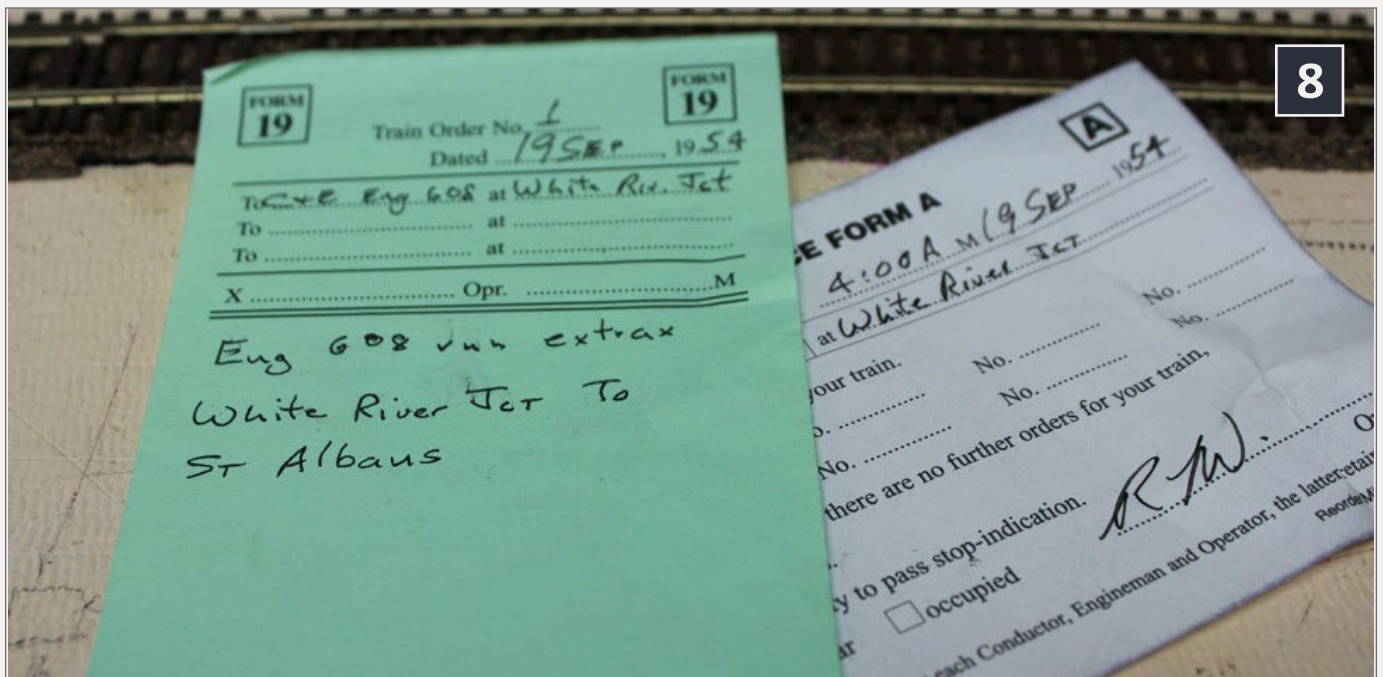 8
FORM 19
FORM 19
Train Order No. 1
Dated 19 SEP, 1954
To C+E Eng 608 at White Riv. Jct
To at
To at
X Opr. M
Eng 608 run extrax
White River Jct To
St Albans
A
CE FORM A
4:00A M 19 SEP 1954
at White River Jct
your train. No. No.
No. No.
No.
there are no further orders for your train,
R M.
y to pass stop-indication.
occupied
each Conductor, Engineman and Operator, the latter retain